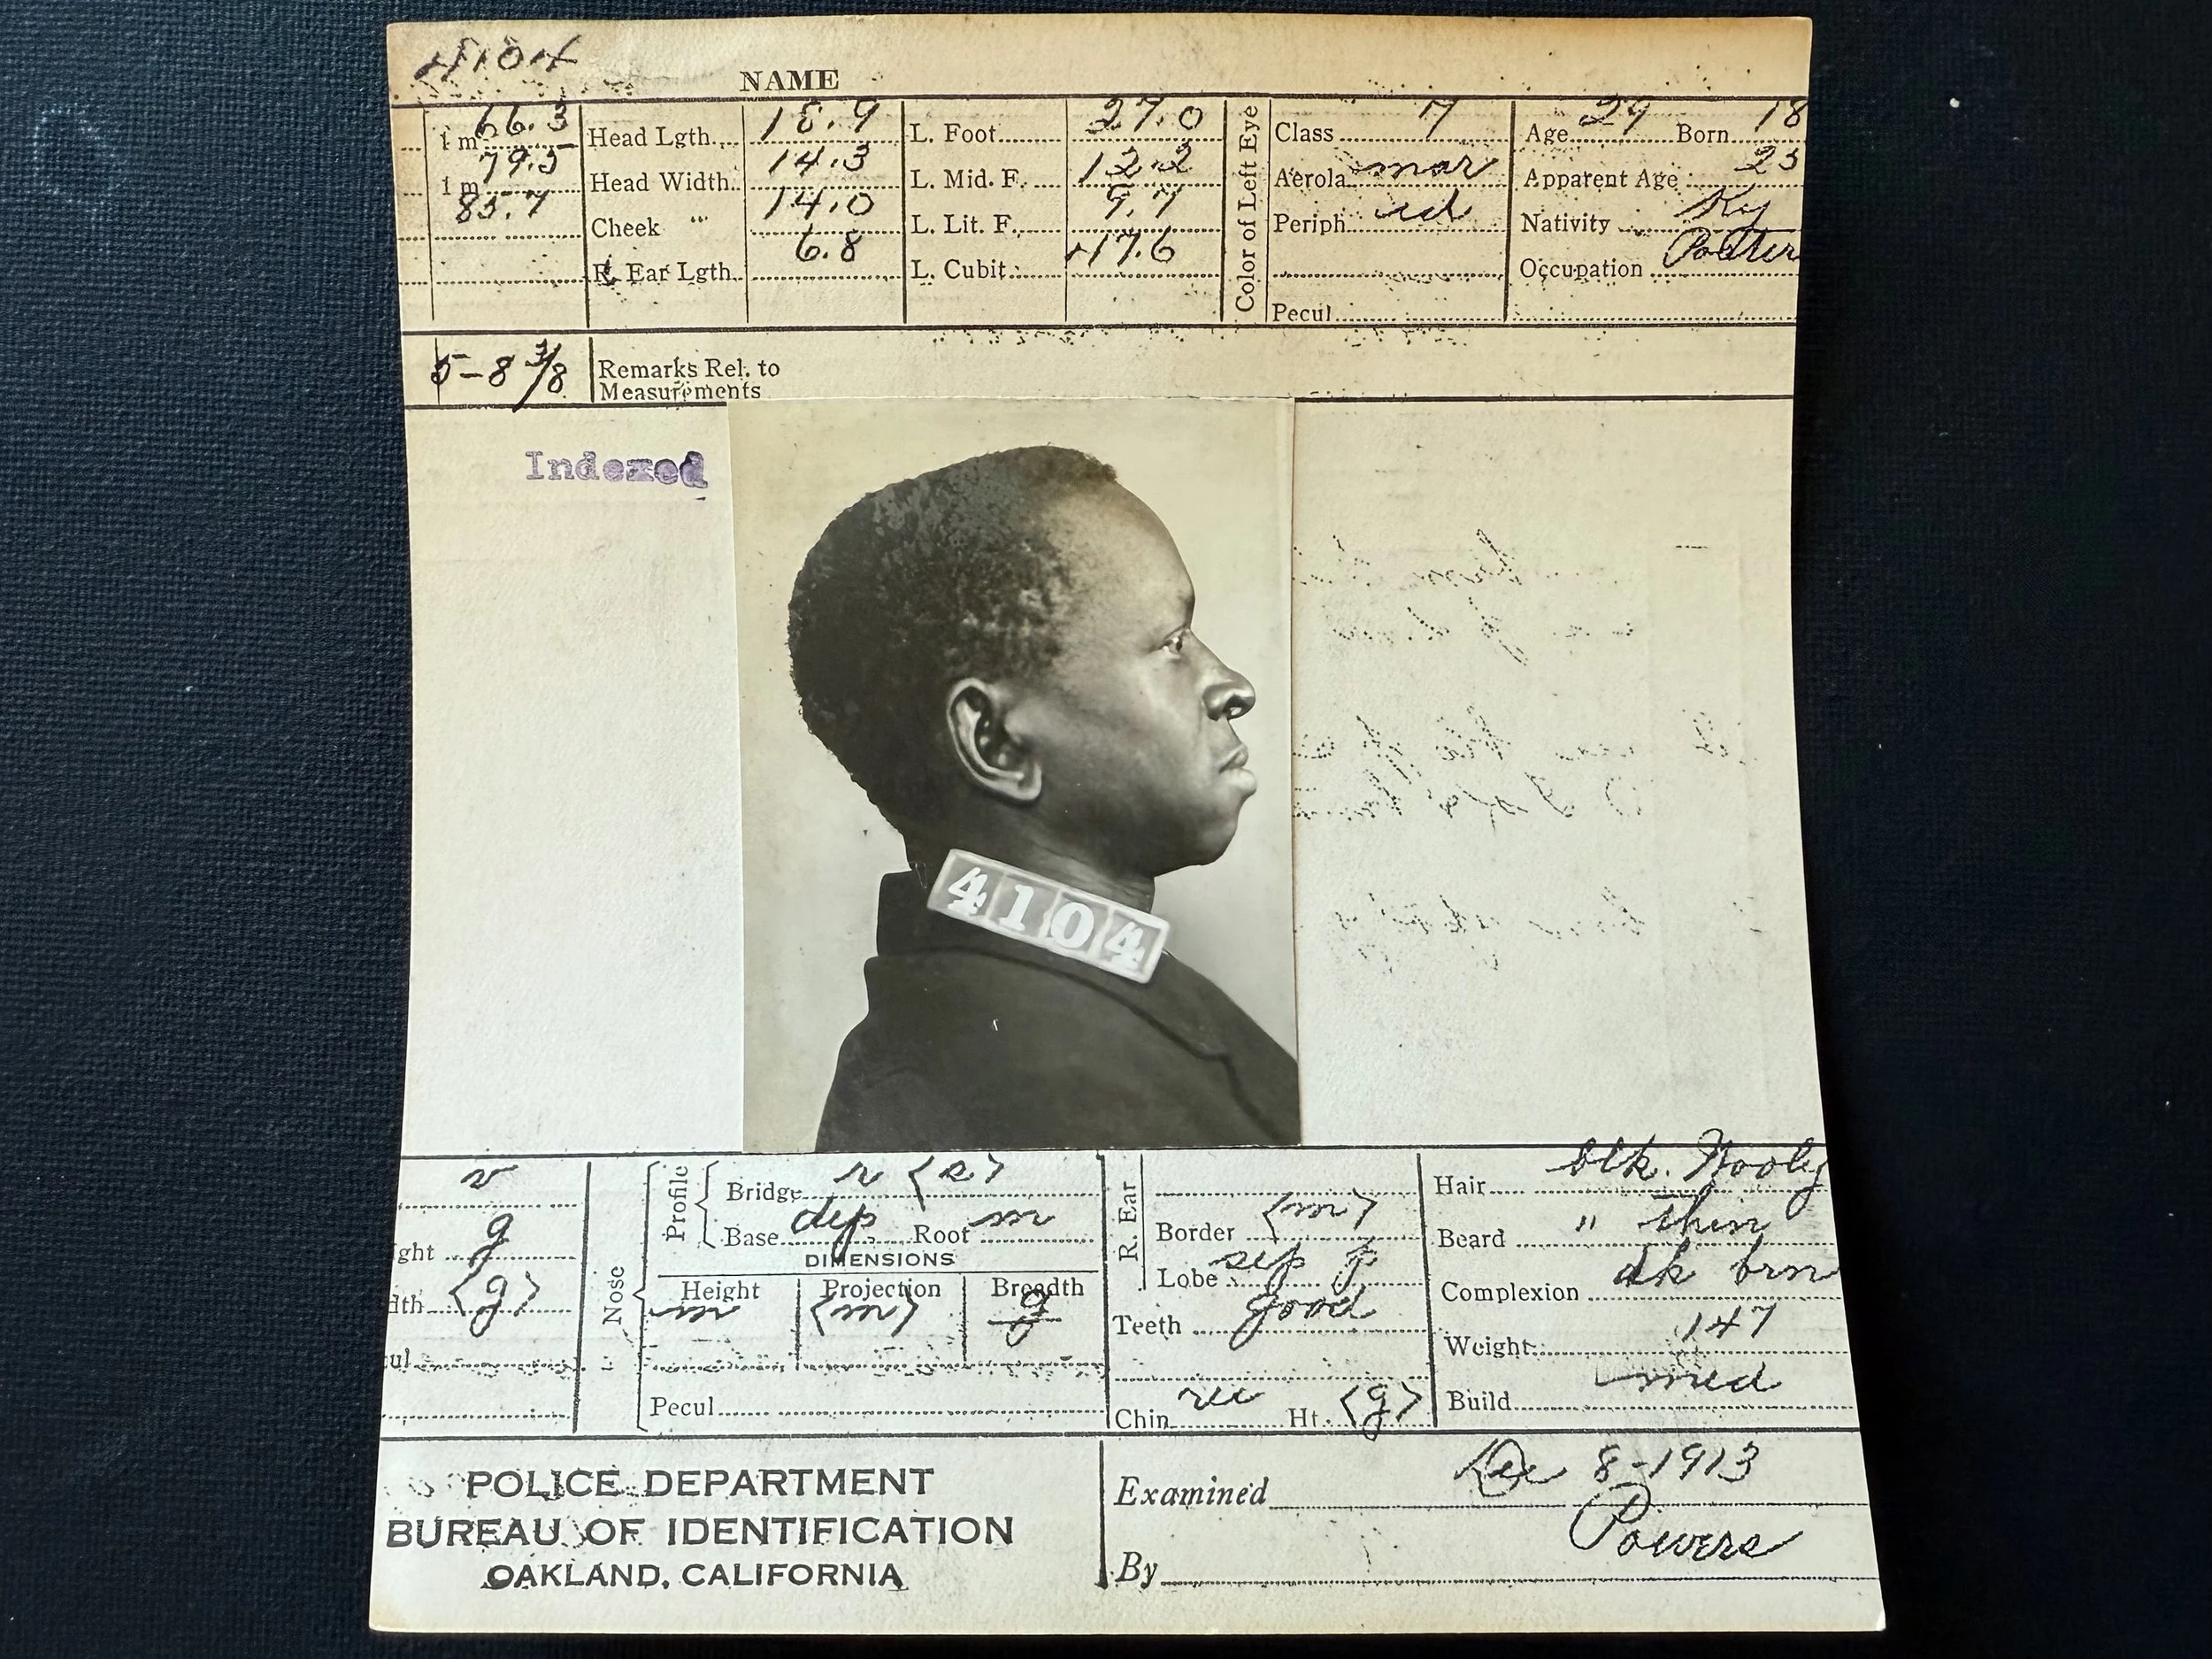 4104
NAME
1 m 66.3 Head Lgth. 18.9 L. Foot 27.0 Color of Left Eye Class 7 Age 29 Born 18
1 m 79.5 Head Width 14.3 L. Mid. F. 12.2 Aerola mar Apparent Age 23
85.7 Cheek " 14.0 L. Lit. F. 9.7 Periph Nativity Ky
R. Ear Lgth. 6.8 L. Cubit 47.6 Occupation Porter
Pecul
5-8 3/8 Remarks Rel. to
Measurements
Indexed
4104
Profile Bridge R. Ear Hair blk. Wooly
ght g Base dep Root m Border (m) Beard " thin
Nose DIMENSIONS Lobe sep Complexion dk brn
dth (g) Height Projection Breadth
m (m) g Teeth good Weight 147
ul
Pecul Chin rec Ht. (g) Build med
POLICE DEPARTMENT
BUREAU OF IDENTIFICATION
OAKLAND, CALIFORNIA
Examined Dec 8-1913
By Powers